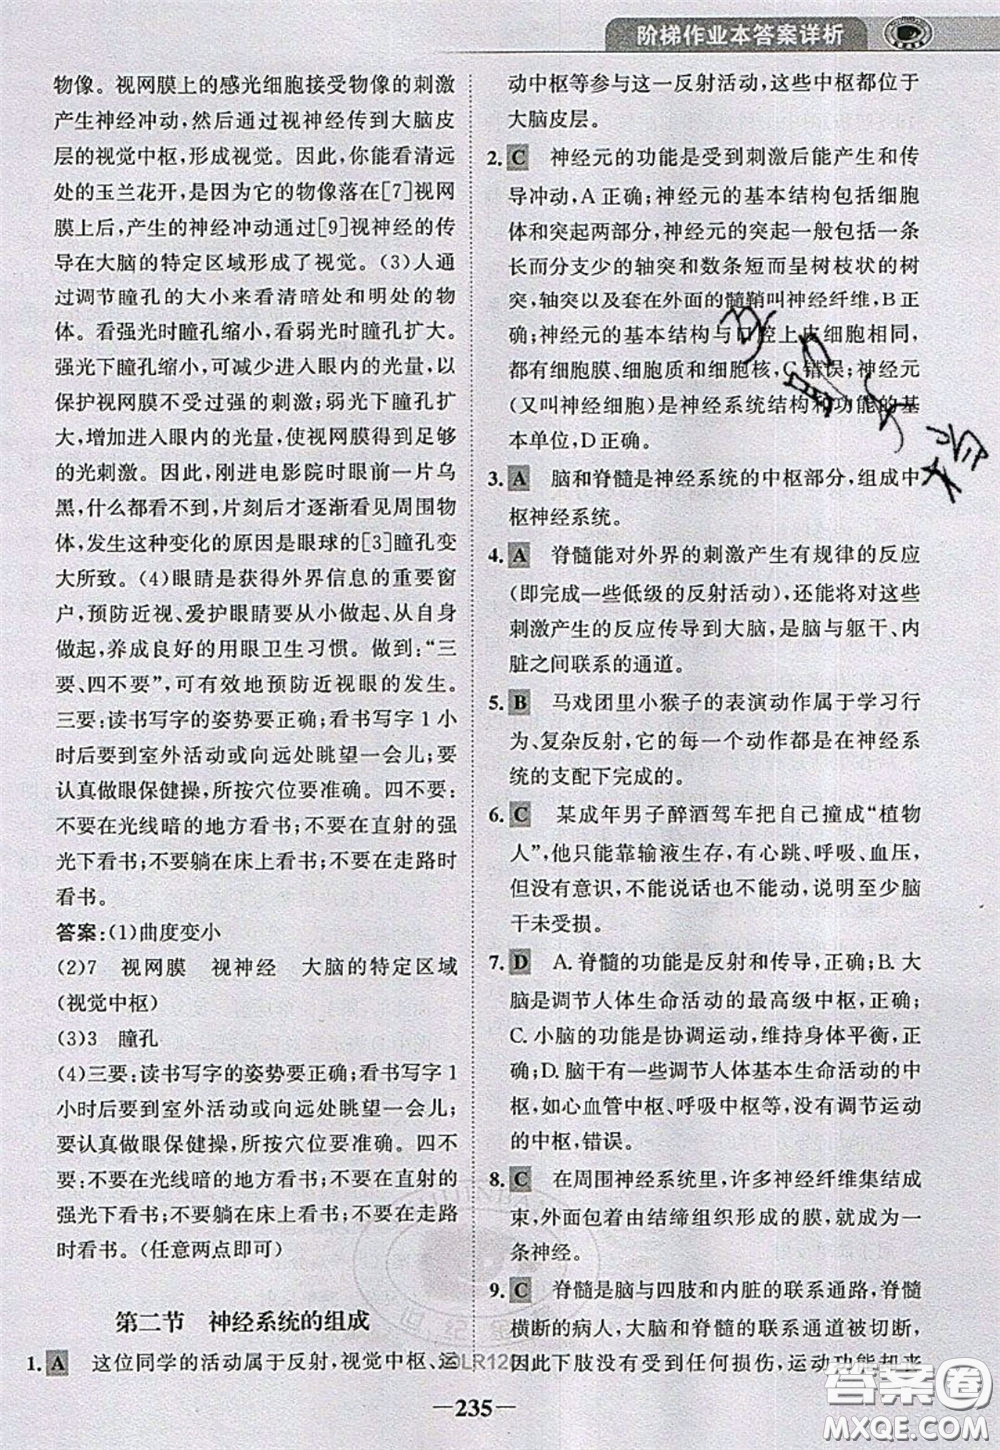 阶梯作业本答案详析
物像。视网膜上的感光细胞接受物像的刺激
产生神经冲动,然后通过视神经传到大脑皮
层的视觉中枢,形成视觉。因此,你能看清远
处的玉兰花开,是因为它的物像落在[7]视网
膜上,产生的神经冲动通过[9]视神经的传
导在大脑的特定区域形成了视觉。(3)人通
过调节瞳孔的大小来看清暗处和明处的物
体。看强光时瞳孔缩小,看弱光时瞳孔扩大。
强光下瞳孔缩小,减少进入眼内的光量,以
保护视网膜不受过强的刺激;弱光下瞳孔扩
大,增加进入眼内的光量,使视网膜得到足够
的光刺激。因此,刚进电影院时眼前一片乌
黑,什么都看不到,过了一会儿逐渐看见周围物
体,发生这种变化的原因是眼球的[3]瞳孔变
大所致。(4)眼睛是获得外界信息的重要窗
户,预防近视、爱护眼睛要从小做起、从自身
做起,养成良好的用眼卫生习惯。做到:“三
要、四不要”,可有效地预防近视眼的发生。
三要:读书写字的姿势要正确;看书写字 1 小
时后要到室外活动或向远处眺望一会儿;要
认真做眼保健操,所按穴位要准确。四不要:
不要在光线暗的地方看书;不要在直射的强
光下看书;不要躺在床上看书;不要在走路时
看书。
答案:(1)曲度变小
(2)7 视网膜 视神经 大脑的特定区域
(视觉中枢)
(3)3 瞳孔
(4)三要:读书写字的姿势要正确;看书写字 1
小时后要到室外活动或向远处眺望一会儿;
要认真做眼保健操,所按穴位要准确。四不
要:不要在光线暗的地方看书;不要在直射的
强光下看书;不要躺在床上看书;不要在走路
时看书。(任意两点即可)
第二节 神经系统的组成
1. A 这位同学的活动属于反射,视觉中枢、运
动中枢等参与了这一反射活动,这些中枢都位于
大脑皮层。
2. C 神经元的功能是受到刺激后能产生和传
导冲动,A 正确;神经元的基本结构包括细胞
体和突起两部分,神经元的突起一般包括一条
长而分支少的轴突和数条短而呈树枝状的树
突,轴突以及套在外面的髓鞘叫神经纤维,B 正
确;神经元的基本结构与口腔上皮细胞相同,
都有细胞膜、细胞质和细胞核,C 错误;神经元
(又叫神经细胞)是神经系统结构和功能的基
本单位,D 正确。
3. A 脑和脊髓是神经系统的中枢部分,组成中
枢神经系统。
4. A 脊髓能对外界的刺激产生有规律的反应
(即完成一些低级的反射活动),还能将对这些
刺激产生的反应传导到大脑,是脑与躯干、内
脏之间联系的通道。
5. B 马戏团里小猴子的表演动作属于学习行
为、复杂反射,它的每一个动作都是在神经系
统的支配下完成的。
6. C 某成年男子醉酒驾车把自己撞成“植物
人”,他只能靠输液生存,有心跳、呼吸、血压,
但没有意识,不能说话也不能动,说明至少脑
干未受损。
7. D A. 脊髓的功能是反射和传导,正确;B. 大
脑是调节人体生命活动的最高级中枢,正确;
C. 小脑的功能是协调运动,维持身体平衡,正
确;D. 脑干有一些调节人体基本生命活动的中枢,
如心血管中枢、呼吸中枢等,没有调节运动
的中枢,错误。
8. C 在周围神经系统里,许多神经纤维集结成
束,外面包着由结缔组织形成的膜,就成为一
条神经。
9. C 脊髓是脑与四肢和内脏的联系通路,脊髓
横断的病人,大脑与下肢的联系通路被切断,
因此下肢没有受到任何损伤,运动功能却来
DLR120
—235—
答案圈
MXQE.COM